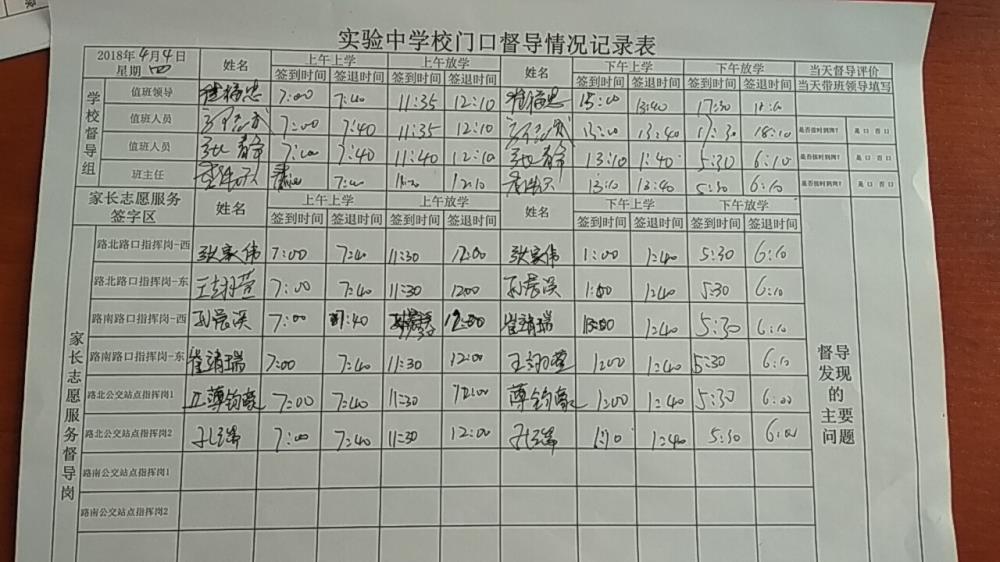 实验中学校门口督导情况记录表
2018年4月4日 星期四 姓名 上午上学 上午放学 姓名 下午上学 下午放学 当天督导评价
签到时间 签退时间 签到时间 签退时间 签到时间 签退时间 签到时间 签退时间 当天带班领导填写
学校督导组
值班领导 7:00 7:40 11:35 12:10 13:40 17:30
值班人员 7:00 7:40 11:35 12:10 13:40 17:30 18:10 是否按时到岗? 是口 否口
值班人员 张静 7:00 7:40 11:40 12:10 张静 13:10 1:40 5:30 6:10 是否按时到岗? 是口 否口
班主任 7:40 12:10 13:10 13:40 5:30 6:10 是否按时到岗? 是口 否口
家长志愿服务签字区 姓名 上午上学 上午放学 姓名 下午上学 下午放学
签到时间 签退时间 签到时间 签退时间 签到时间 签退时间 签到时间 签退时间
家长志愿服务督导岗
路北路口指挥岗-西 张家伟 7:00 7:40 11:30 12:00 张家伟 1:00 1:40 5:30 6:10
路北路口指挥岗-东 7:00 7:40 11:30 12:00 孙晨溪 1:00 1:40 5:30 6:10
路南路口指挥岗-西 孙晨溪 7:00 7:40 12:00 崔靖瑞 1:40 5:30 6:10
路南路口指挥岗-东 崔靖瑞 7:00 7:40 11:30 12:00 1:00 1:40 5:30 6:10
路北公交站点指挥岗1 薄钧豪 7:00 7:40 11:30 12:00 薄钧豪 1:00 1:40 5:30 6:00
路北公交站点指挥岗2 7:00 7:40 11:30 12:00 1:10 1:40 5:30 6:00
路南公交站点指挥岗1
路南公交站点指挥岗2
督导发现的主要问题